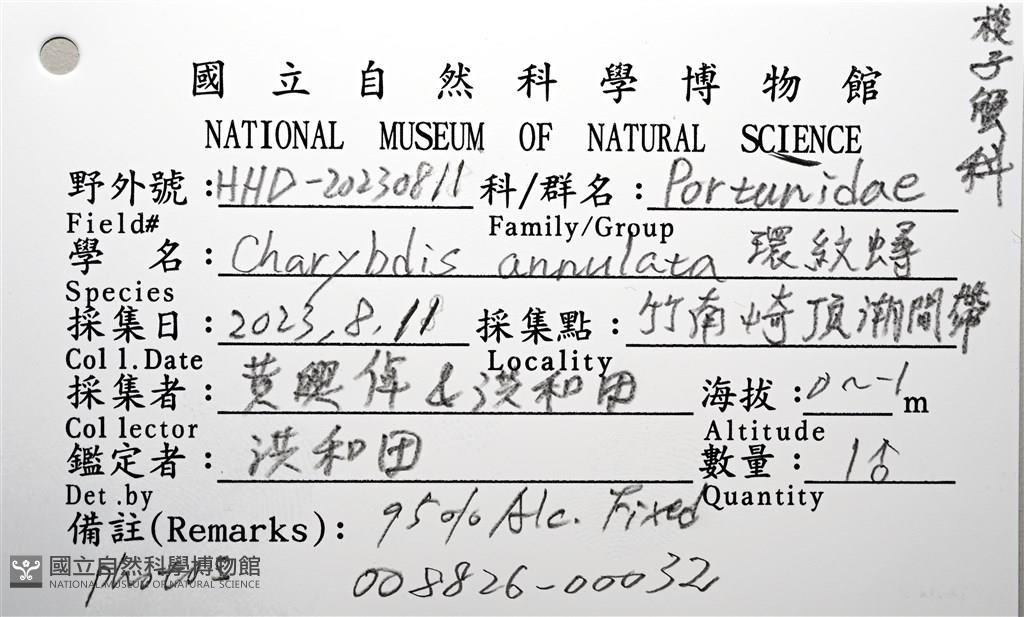 國立自然科學博物館
NATIONAL MUSEUM OF NATURAL SCIENCE
梭子蟹科
野外號:HHD-20230811 科/群名:Portunidae
Field# Family/Group
學 名:Charybdis annulata 環紋蟳
Species
採集日:2023,8,11 採集點:竹南崎頂潮間帶
Coll.Date Locality
採集者:黃興倬&洪和田 海拔:0~-1 m
Collector Altitude
鑑定者:洪和田 數量:1♂
Det.by Quantity
備註(Remarks): 95% Alc. Fixed
photos 008826-00032
國立自然科學博物館
NATIONAL MUSEUM OF NATURAL SCIENCE